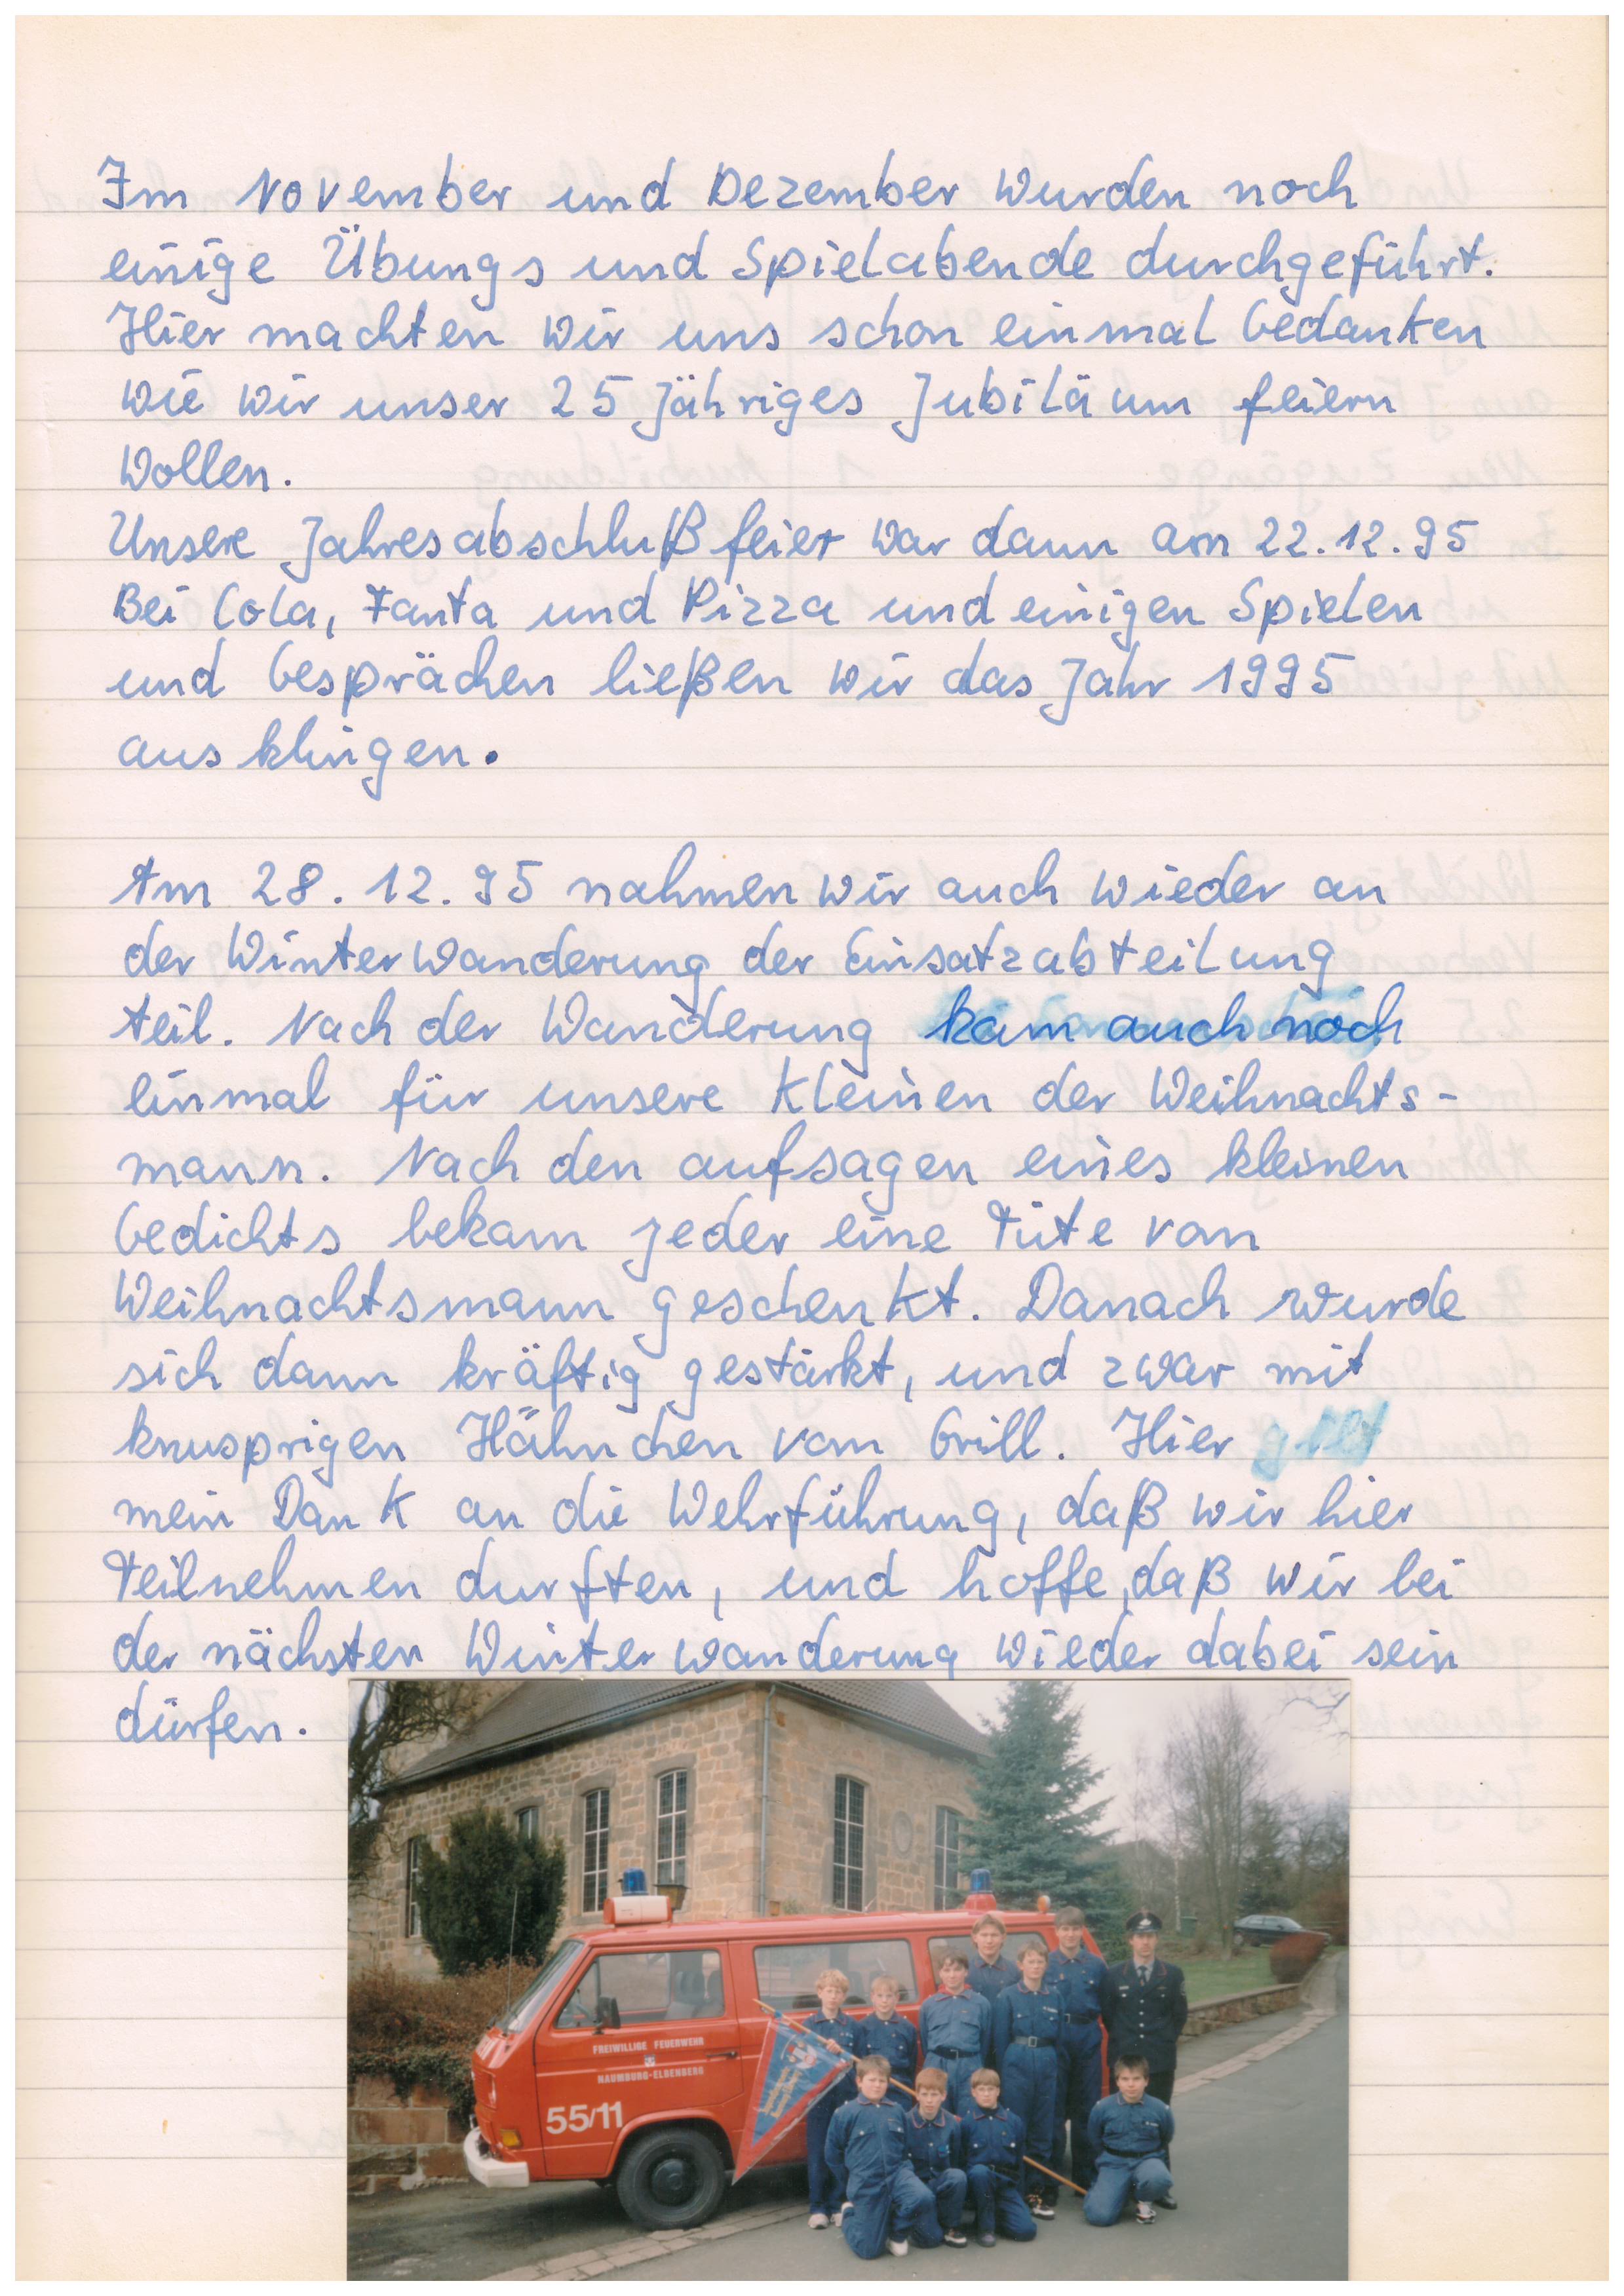 Im November und Dezember wurden noch
einige Übungs und Spielabende durchgeführt.
Hier machten wir uns schon einmal Gedanken
wie wir unser 25 Jähriges Jubiläum feiern
wollen.
Unsere Jahresabschlußfeier war dann am 22.12.95
Bei Cola, Fanta und Pizza und einigen Spielen
und Gesprächen ließen wir das Jahr 1995
ausklingen.
Am 28.12.95 nahmen wir auch wieder an
der Winterwanderung der Einsatzabteilung
teil. Nach der Wanderung kam auch noch
einmal für unsere Kleinen der Weihnachts-
mann. Nach den aufsagen eines kleinen
Gedichts bekam jeder eine Tüte vom
Weihnachtsmann geschenkt. Danach wurde
sich dann kräftig gestärkt, und zwar mit
knusprigen Hähnchen vom Grill. Hier gilt
mein Dank an die Wehrführung, daß wir hier
Teilnehmen durften, und hoffe, daß wir bei
der nächsten Winterwanderung wieder dabei sein
dürfen.
FREIWILLIGE FEUERWEHR
NAUMBURG-ELBENBERG
55/11